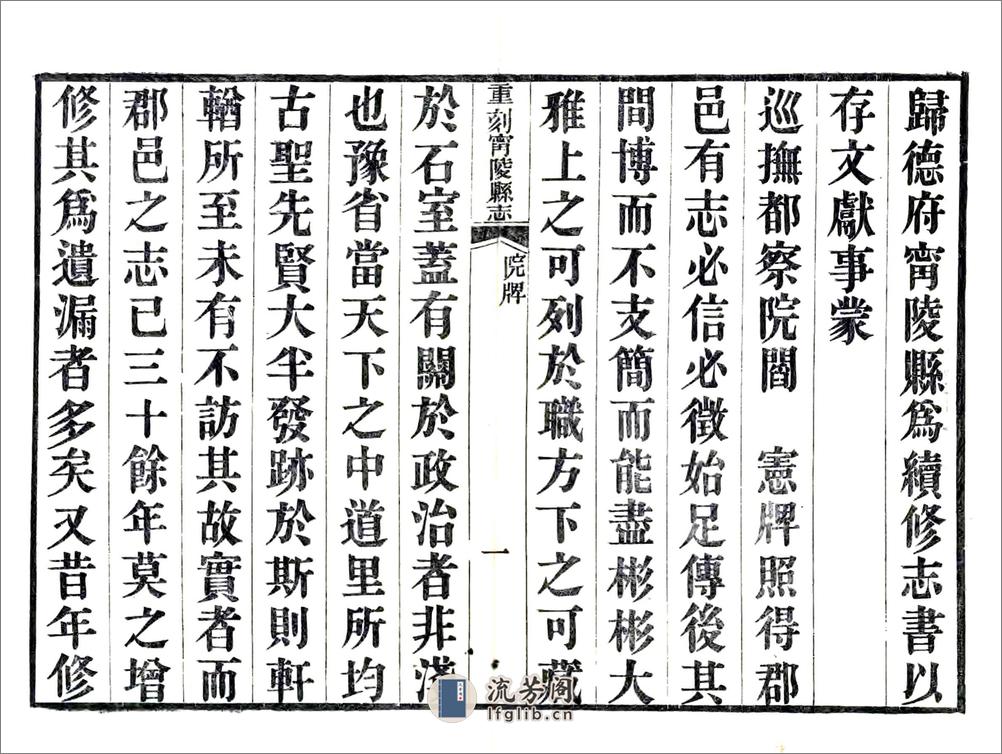 歸德府甯陵縣爲續修志書以
存文獻事蒙
巡撫都察院閻 憲牌照得郡
邑有志必信必徵始足傳後其
間博而不支簡而能盡彬彬大
雅上之可列於職方下之可藏
重刻甯陵縣志 院牌 一
於石室蓋有關於政治者非淺
也豫省當天下之中道里所均
古聖先賢大半發跡於斯則軒
輶所至未有不訪其故實者而
郡邑之志已三十餘年莫之增
修其爲遺漏者多矣又昔年修
流芳阁
lfglib.cn